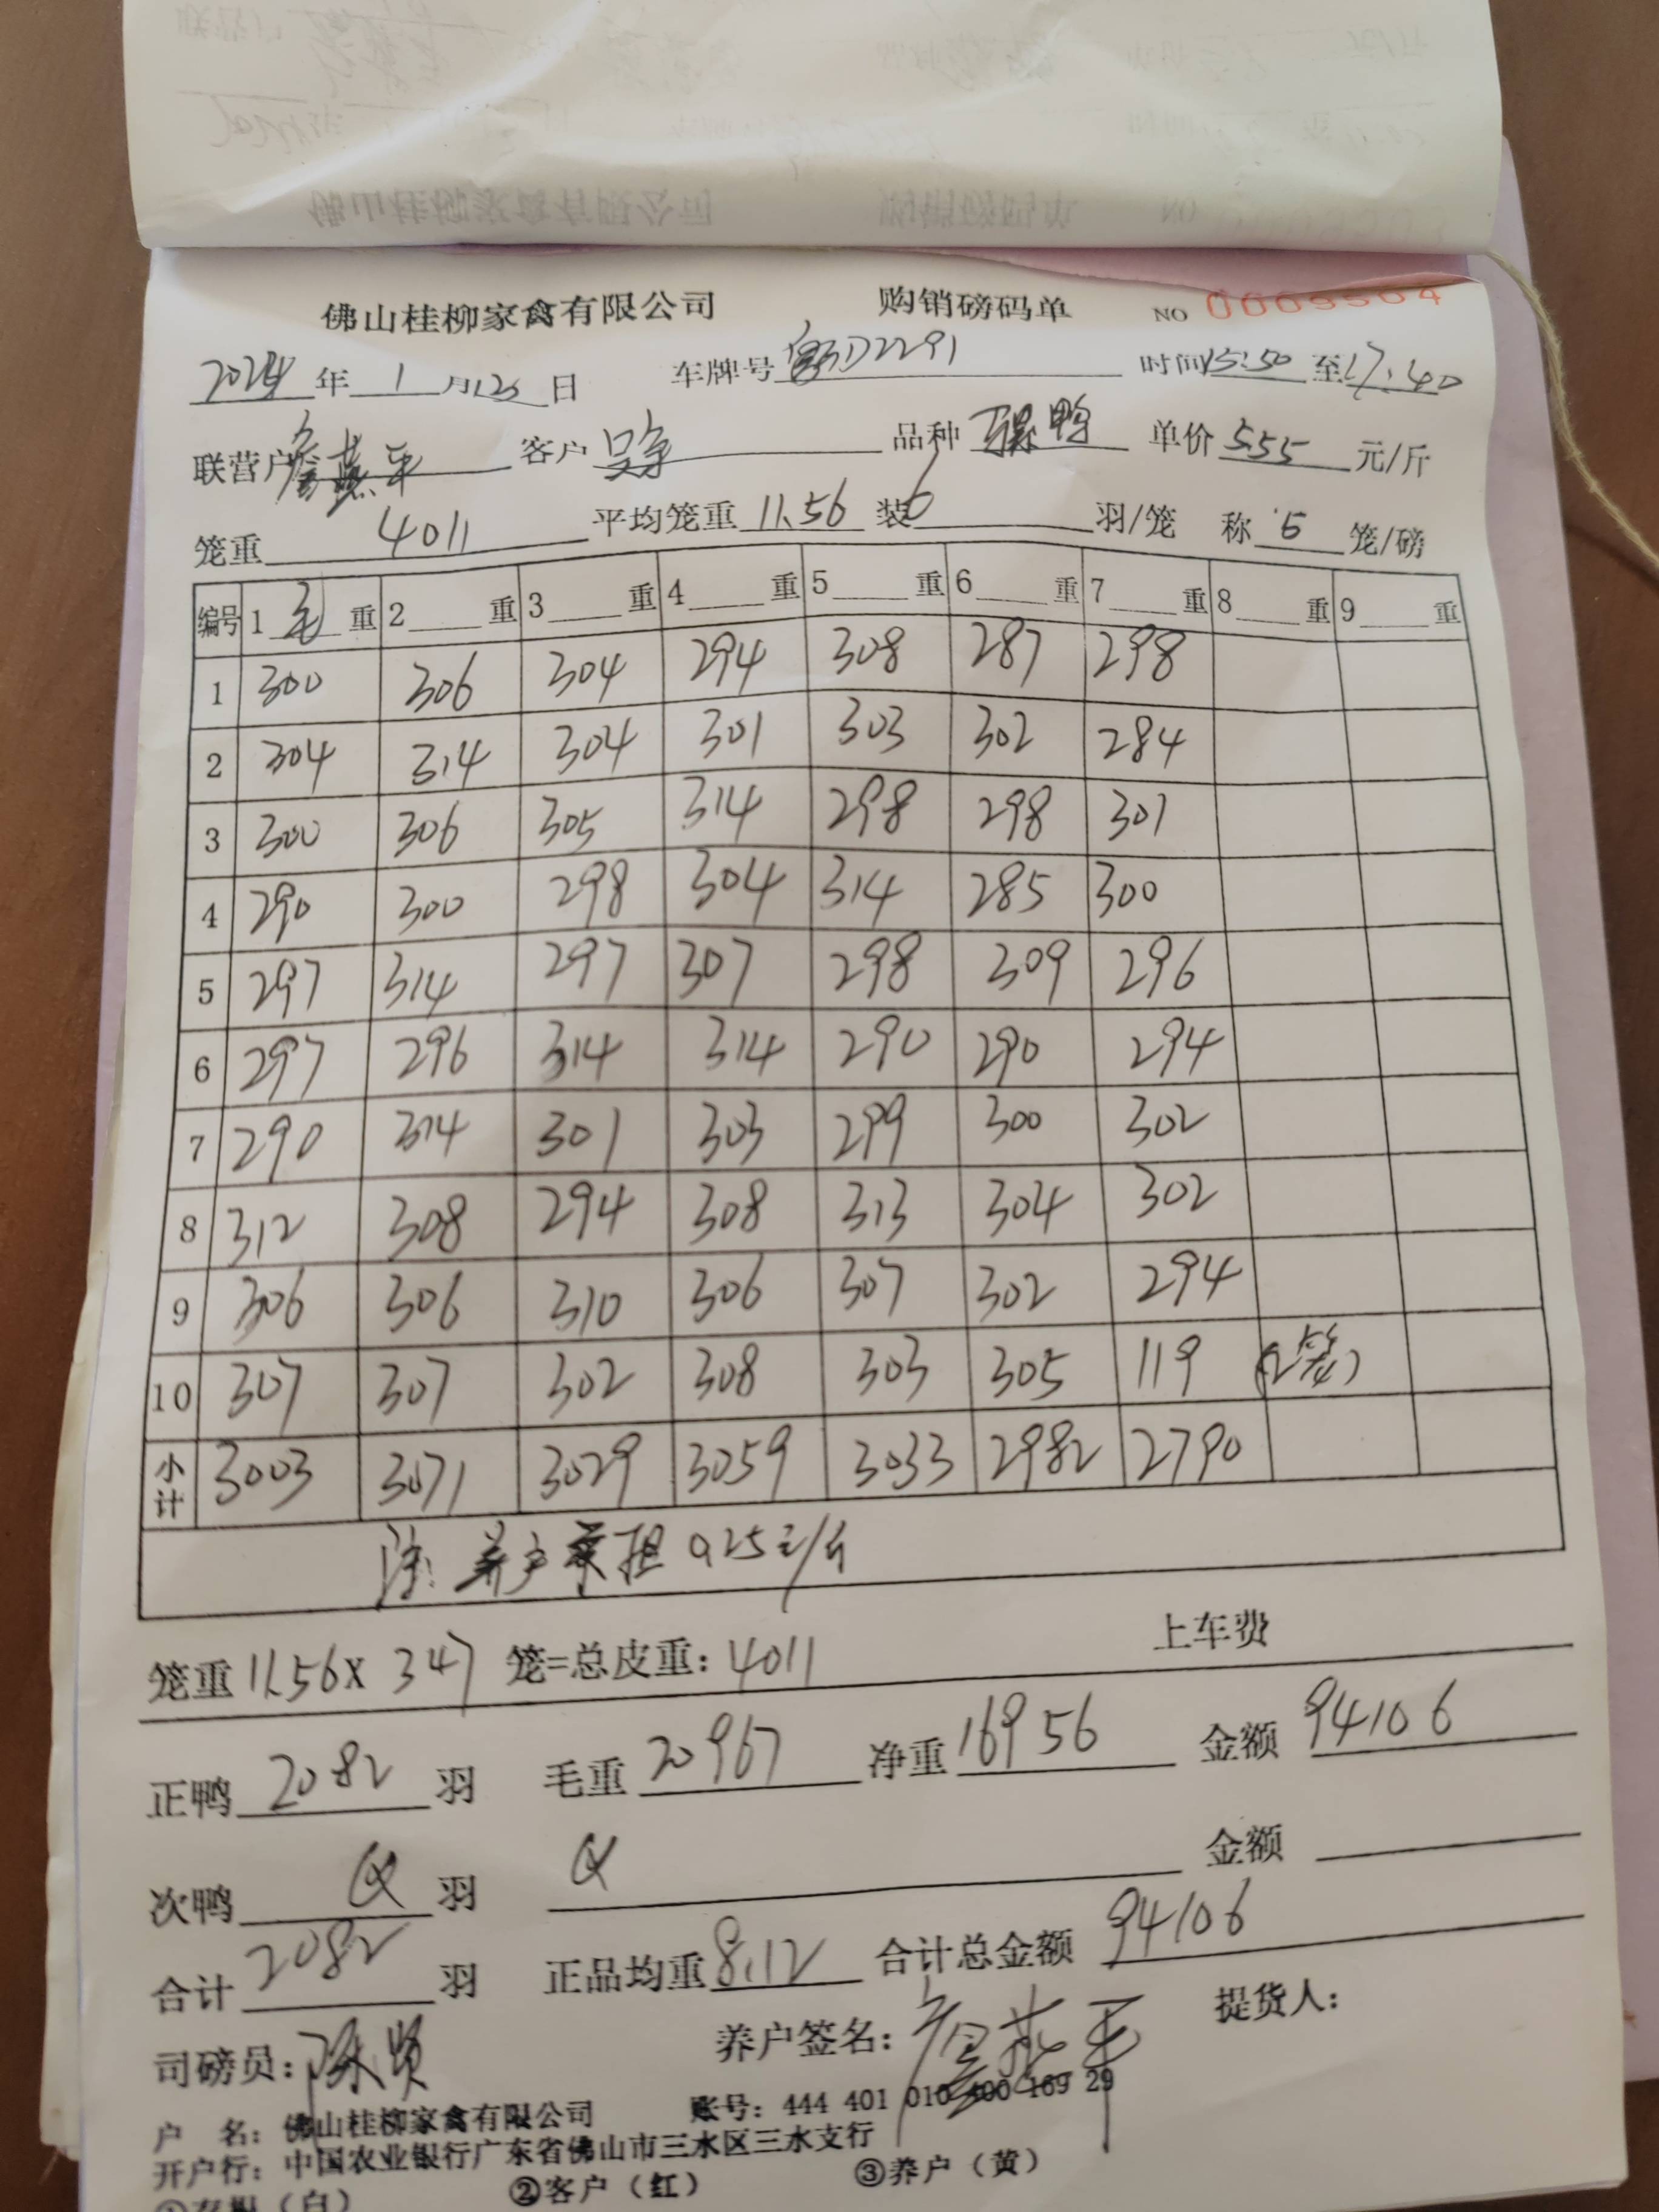 佛山桂柳家禽有限公司 购销磅码单 NO 0009504
2024年1月25日 车牌号 D2291 时间15:50至17:40
联营户 詹燕平 客户 品种 骡鸭 单价5.55元/斤
笼重4011 平均笼重11.56 装6羽/笼 称5笼/磅
编号 1毛重 2重 3重 4重 5重 6重 7重 8重 9重
1 300 306 304 294 308 287 298
2 304 314 304 301 303 302 284
3 300 306 305 314 298 298 301
4 290 300 298 304 314 285 300
5 297 314 297 307 298 309 296
6 297 296 314 314 290 290 294
7 290 314 301 303 299 300 302
8 312 308 294 308 313 304 302
9 306 306 310 306 307 302 294
10 307 307 302 308 303 305 119 (2笼)
小计 3003 3071 3029 3059 3033 2982 2790
注: 养户承担0.25元/斤
笼重11.56x347笼=总皮重:4011 上车费
正鸭2082羽 毛重20967 净重16956 金额94106
次鸭 羽 金额
合计2082羽 正品均重8.12 合计总金额94106
司磅员: 陈贤 养户签名: 詹燕平 提货人:
户 名: 佛山桂柳家禽有限公司 账号: 444 401 010 400 169 29
开户行: 中国农业银行广东省佛山市三水区三水支行
①存根(白) ②客户(红) ③养户(黄)